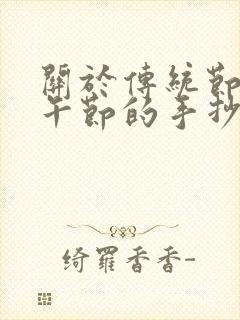 關於傳統節
午節的手抄
绮羅香香-